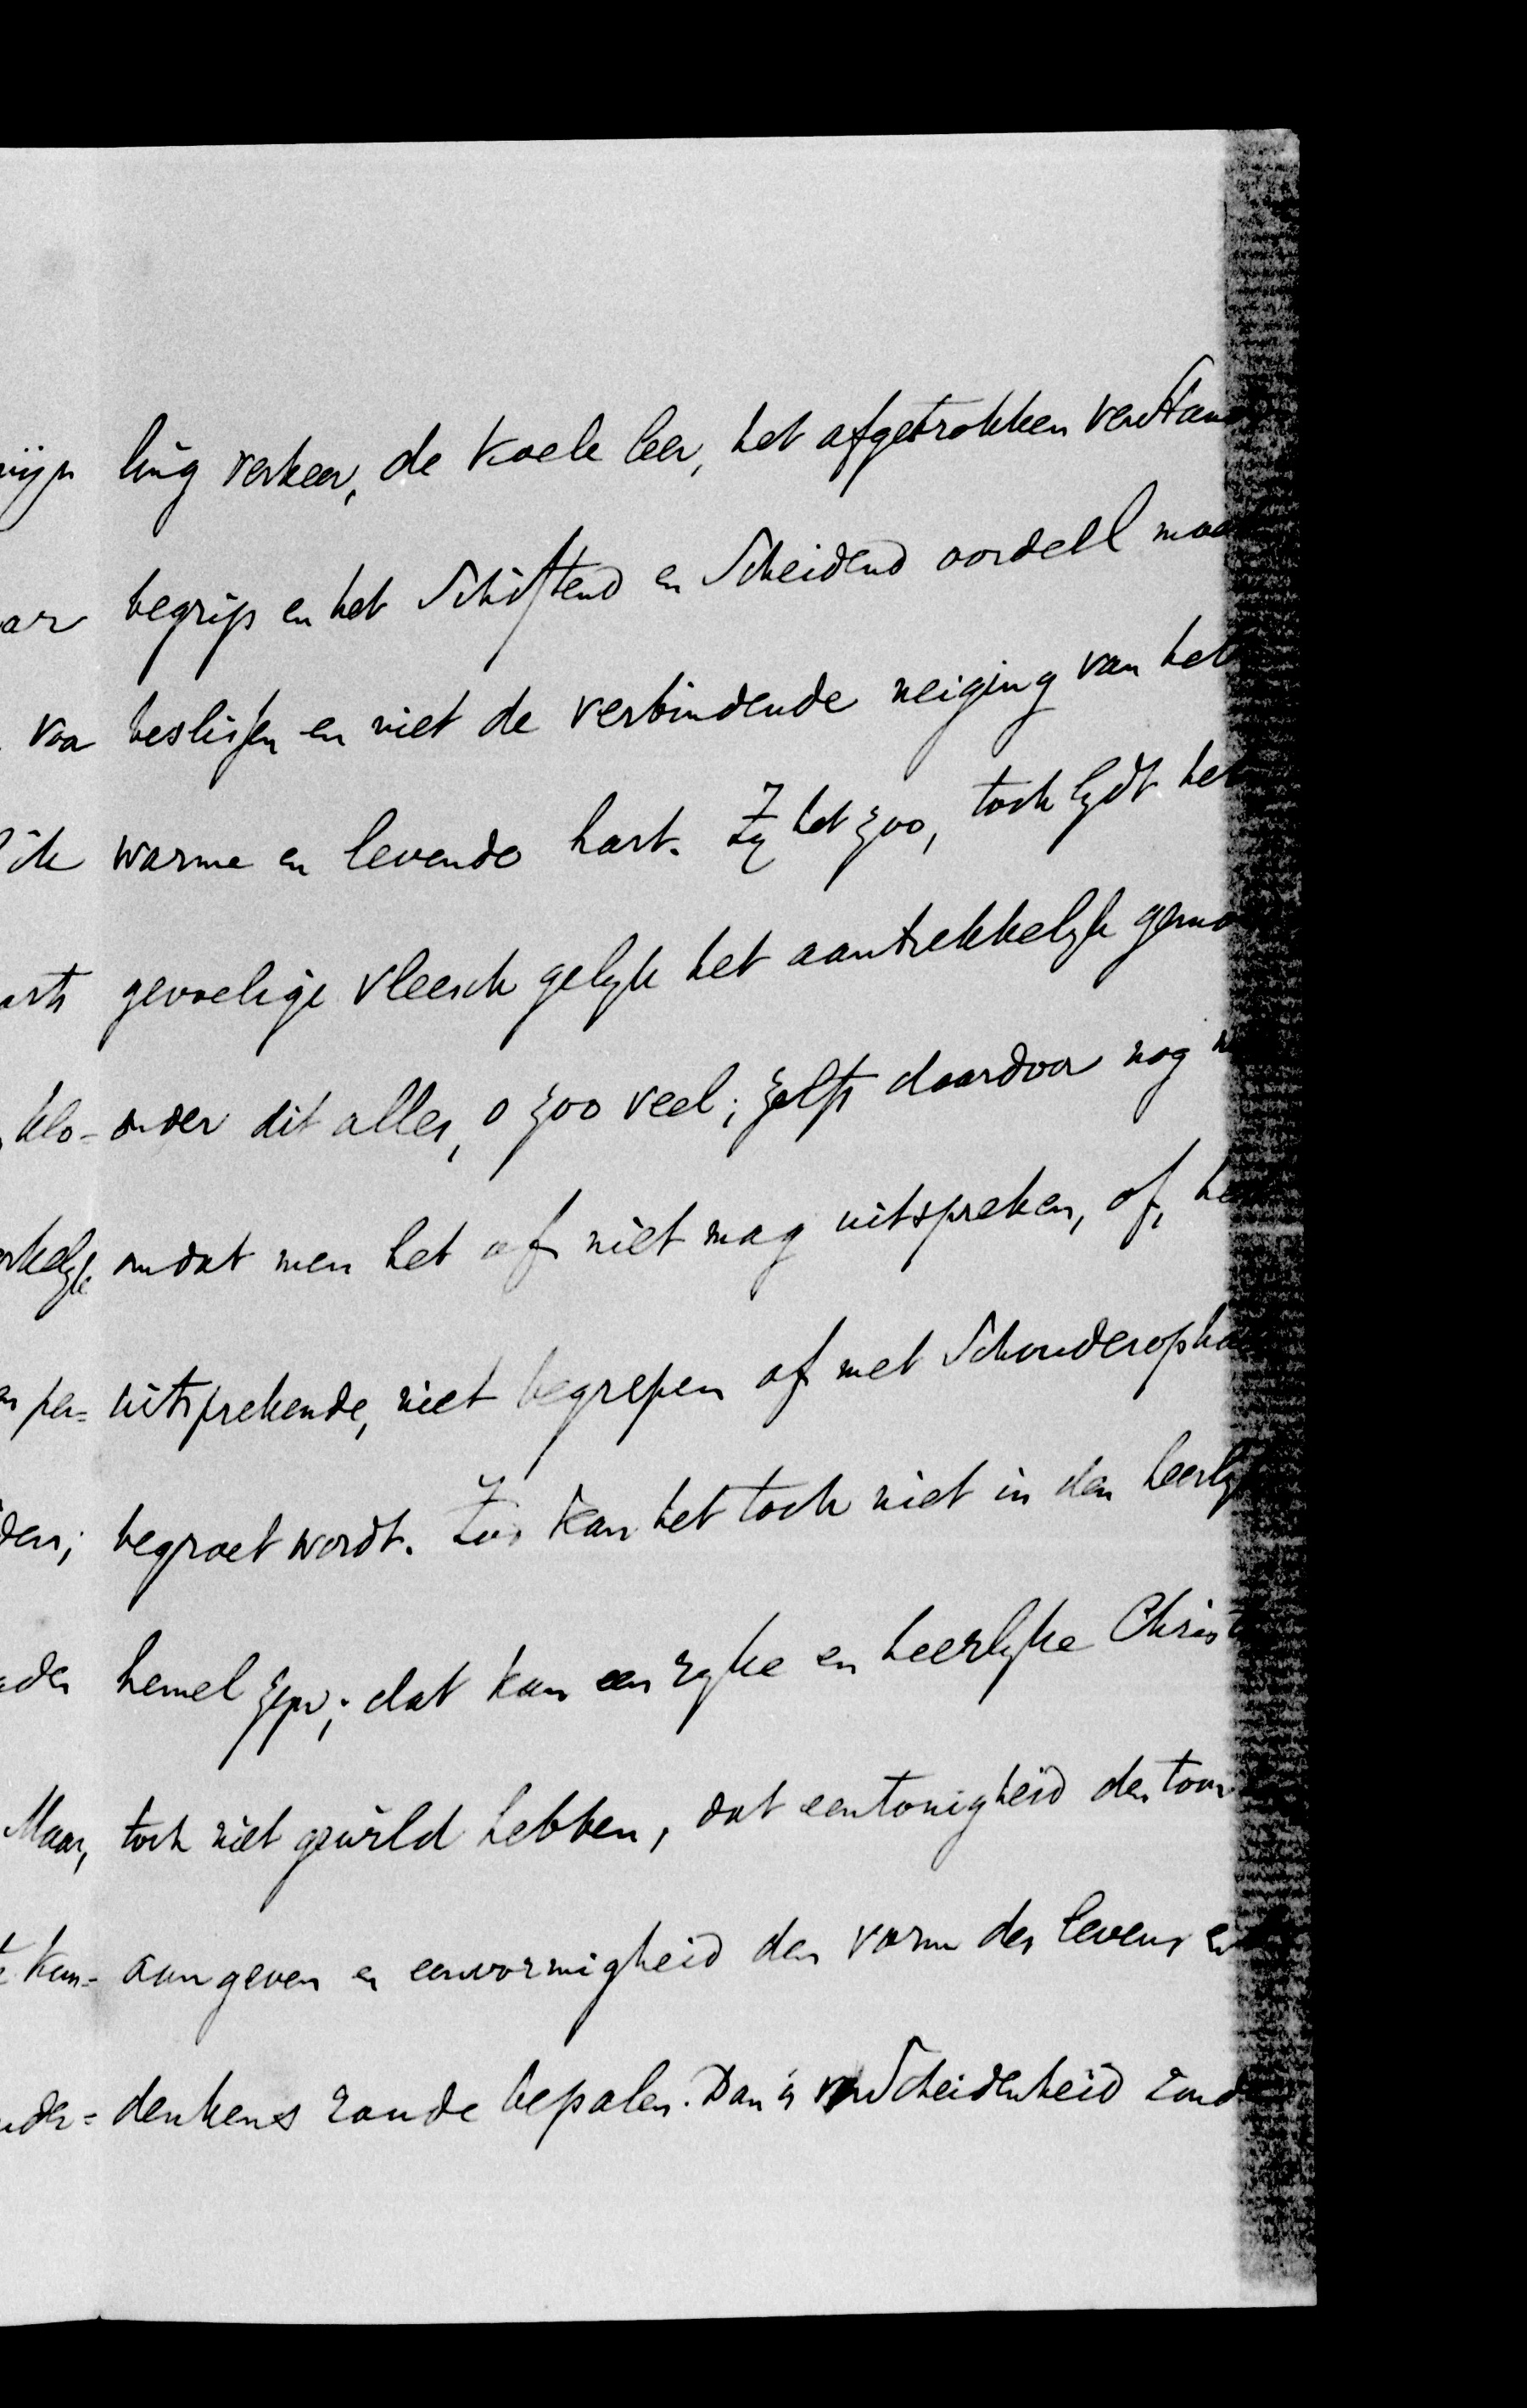 ling verkeer, de koele leer, het afgetrokken verstand
begrip en het schiftend en scheidend oordeel moe
beslissen en niet de verbindende neiging van het
warme en levende hart. Zy het zoo, toch lydt het
gevoelige vleesch gelyk het aantrekkelyk gemo
onder dit alles, o zoo veel; zelfs daardoor nog
omdat men het of niet mag uitspreken, of, he
uitsprekende, niet begrepen of met schouderopha
begroet wordt. Zoo kan het toch niet in den heerly
hemel zyn; dat kan een ryke en heerlyke Christ
Maar, toch niet gewild hebben, dat eentonigheid den toon
aangeven en eenvormigheid den vorm des levens en
denkens zoude bepalen. Dan is verscheidenheid zond